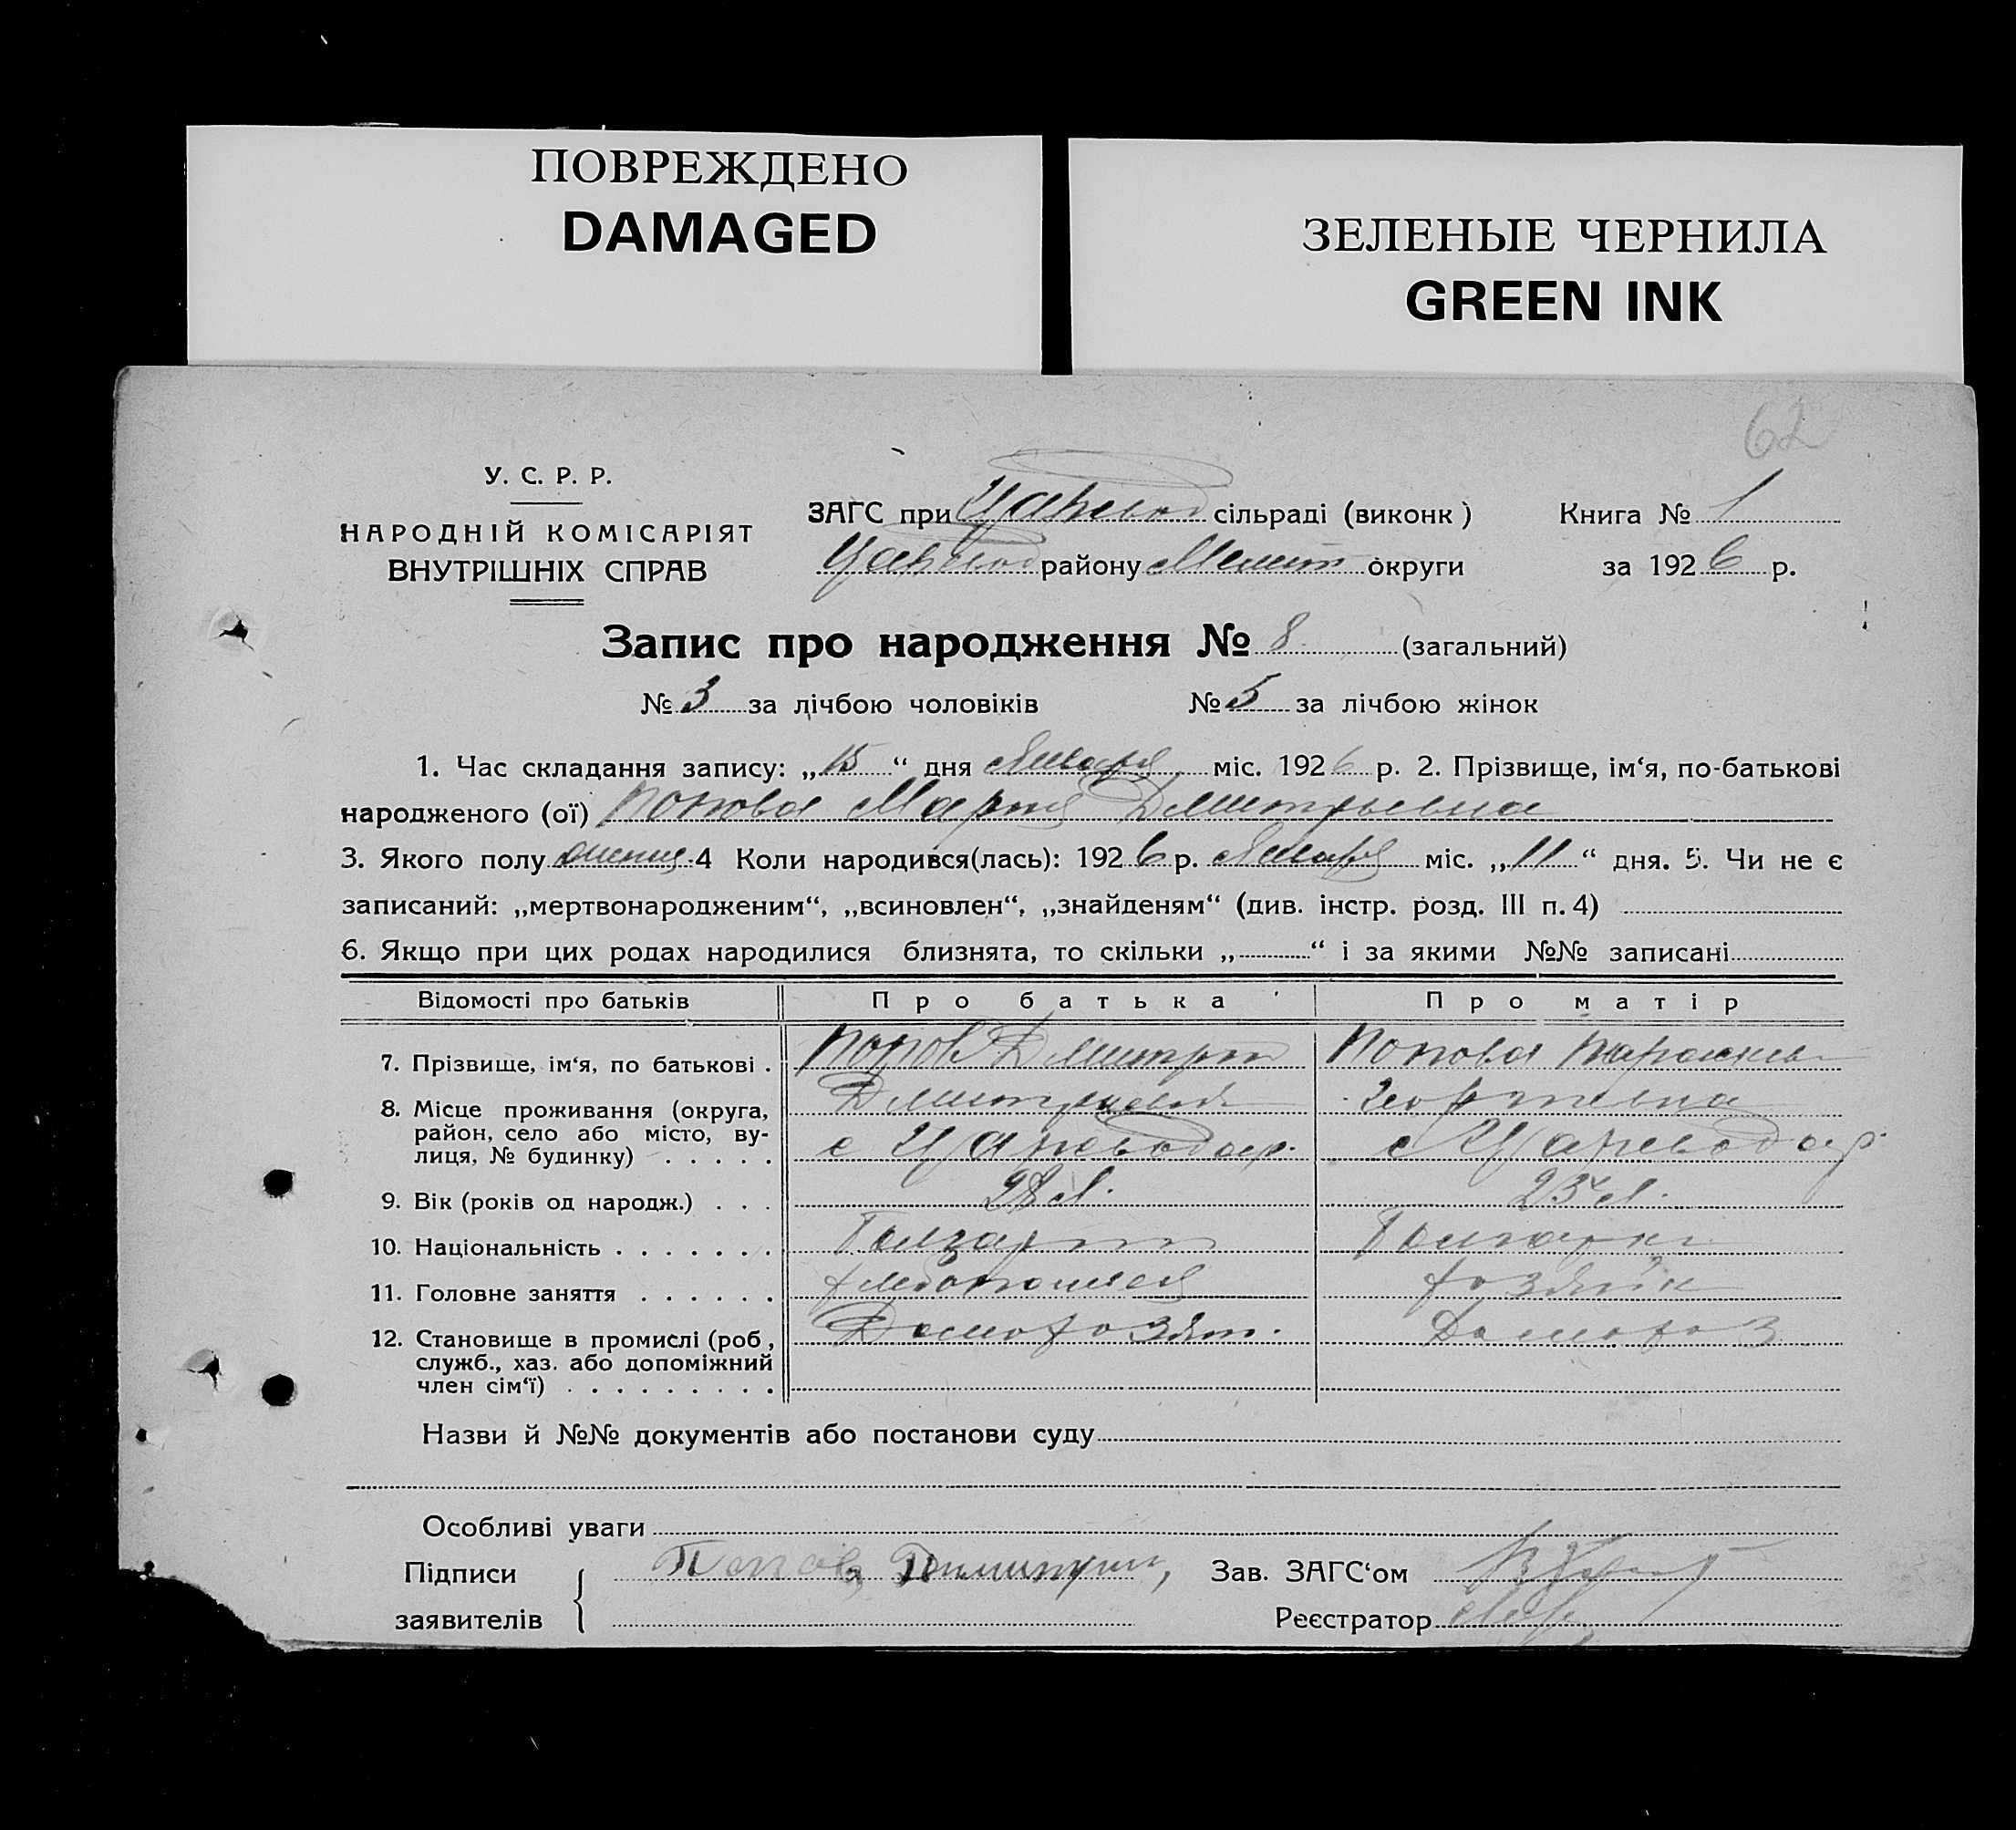 ПОВРЕЖДЕНО
DAMAGED
ЗЕЛЕНЫЕ ЧЕРНИЛА
GREEN INK
62
У. С. Р. Р.
НАРОДНІЙ КОМІСАРІЯТ
ВНУТРІШНІХ СПРАВ
ЗАГС при Царевод сільраді (виконк)
Царевод району Мелит округи
Книга № 1
за 1926 р.
Запис про народження № 8 (загальний)
№ 3 за лічбою чоловіків № 5 за лічбою жінок
1. Час складання запису: „15“ дня Января міс. 1926 р. 2. Прізвище, ім‘я, по-батькові
народженого (ої) Попова Мария Дмитрьевна
3. Якого полу 4 Коли народився(лась): 1926 р. Января міс. „11“ дня. 5. Чи не є
записаний: „мертвонародженим“, „всиновлен“, „знайденям“ (див. інстр. розд. III п. 4)
6. Якщо при цих родах народилися близнята, то скільки „ “ і за якими №№ записані
Відомості про батьків Про батька Про матір
7. Прізвище, ім‘я, по батькові . Попов Дмитрий Попова
Дмитриевич Георгиевна
8. Місце проживання (округа,
район, село або місто, ву-
лиця, № будинку) . . . . . с Цареводар. с Цареводар
9. Вік (років од народж.) . . . 28 л. 23 л.
10. Національність . . . . . . . Болгарин Болгарка
11. Головне заняття . . . . . . Хлебопашец хозяйк
12. Становище в промислі (роб,
служб., хаз. або допоміжний
член сім‘ї) . . . . . . . . . Домохозяин. Домохоз
Назви й №№ документів або постанови суду
Особливі уваги
Підписи
заявителів
Попов Димитрий,
Зав. ЗАГС‘ом
Реєстратор